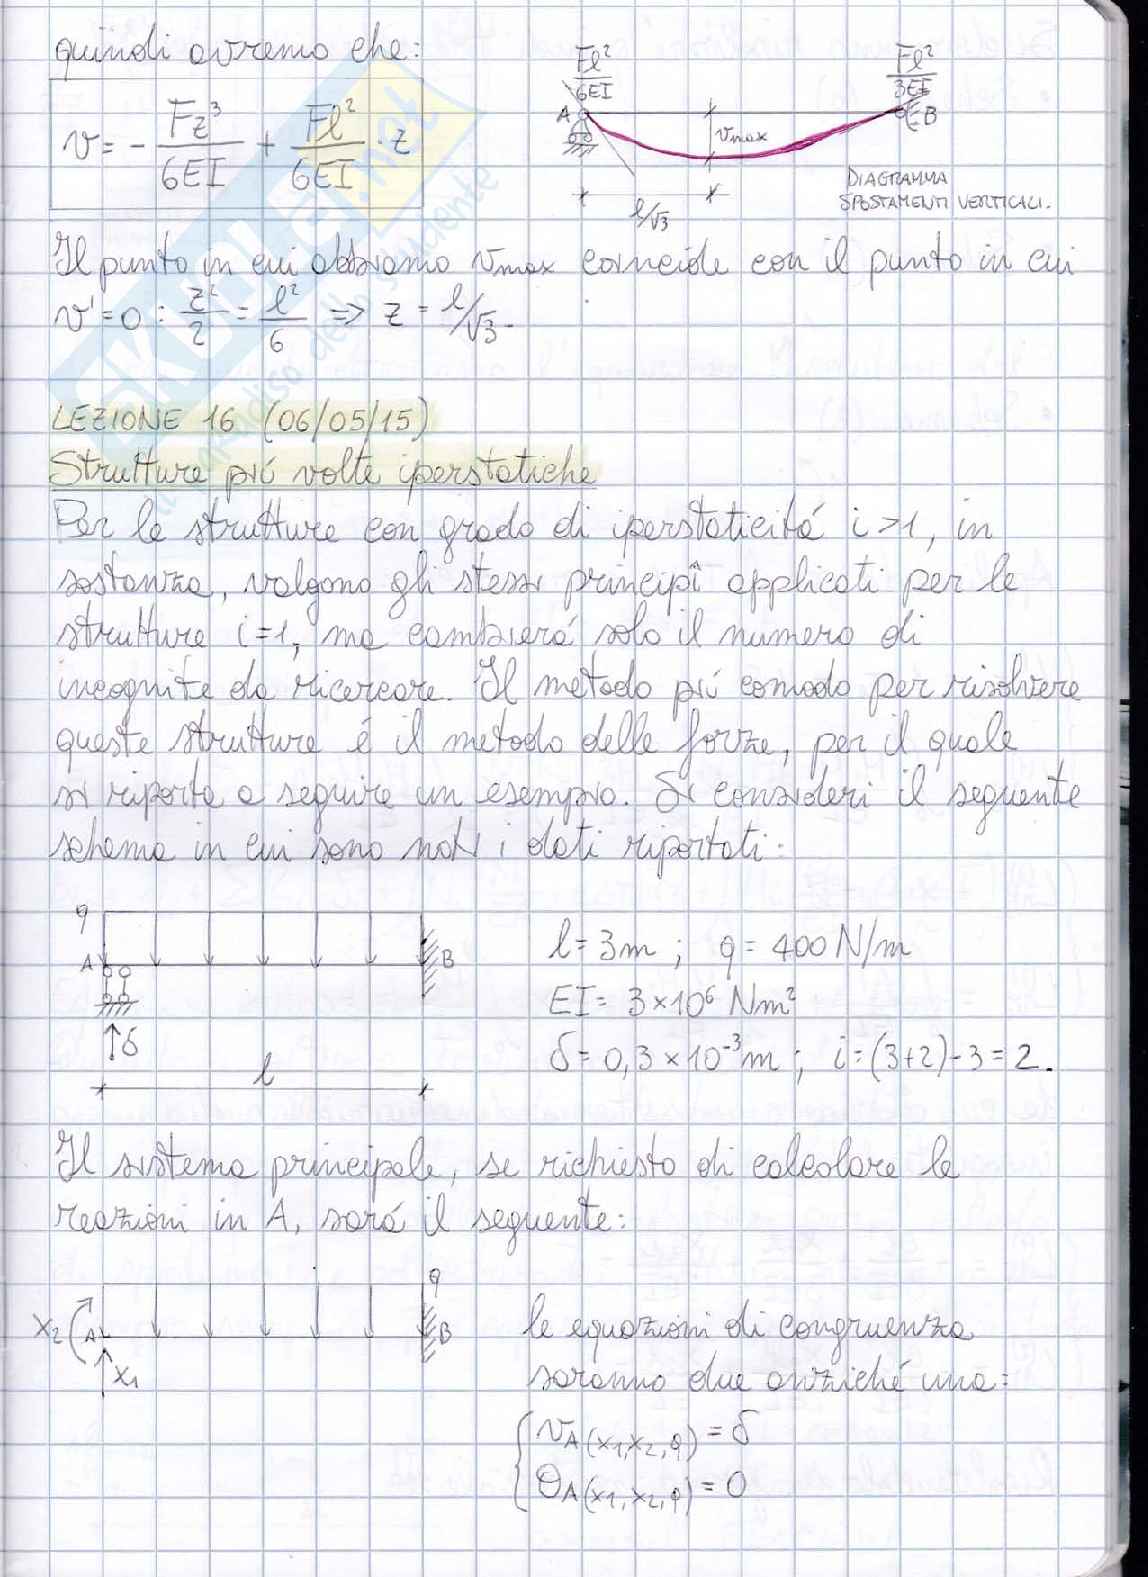 quindi avremo che:
v = - Fz³/6EI + Fl²/6EI · z
Fl²/6EI
Fl²/3EI
A
B
vmax
l/√3
DIAGRAMMA
SPOSTAMENTI VERTICALI.
Il punto in cui abbiamo vmax coincide con il punto in cui
v' = 0 : z²/2 = l²/6 => z = l/√3.
LEZIONE 16 (06/05/15)
Strutture piú volte iperstatiche
Per le strutture con grado di iperstaticitá i>1, in
sostanza, valgono gli stessi principî applicati per le
strutture i=1, ma cambierá solo il numero di
incognite da ricercare. Il metodo piú comodo per risolvere
queste strutture é il metodo delle forze, per il quale
si riporta a seguire un esempio. Si consideri il seguente
schema in cui sono noti i dati riportati:
q
A
B
↑δ
l
l = 3m ; q = 400 N/m
EI = 3×10⁶ Nm²
δ = 0,3 × 10⁻³m ; i = (3+2)-3 = 2.
Il sistema principale, se richiesto di calcolare le
reazioni in A, sará il seguente:
q
x2
A
B
x1
le equazioni di congruenza
saranno due anziché una:
vA(x1,x2,q) = δ
θA(x1,x2,q) = 0
SKUOLA.net
il paradiso dello studente